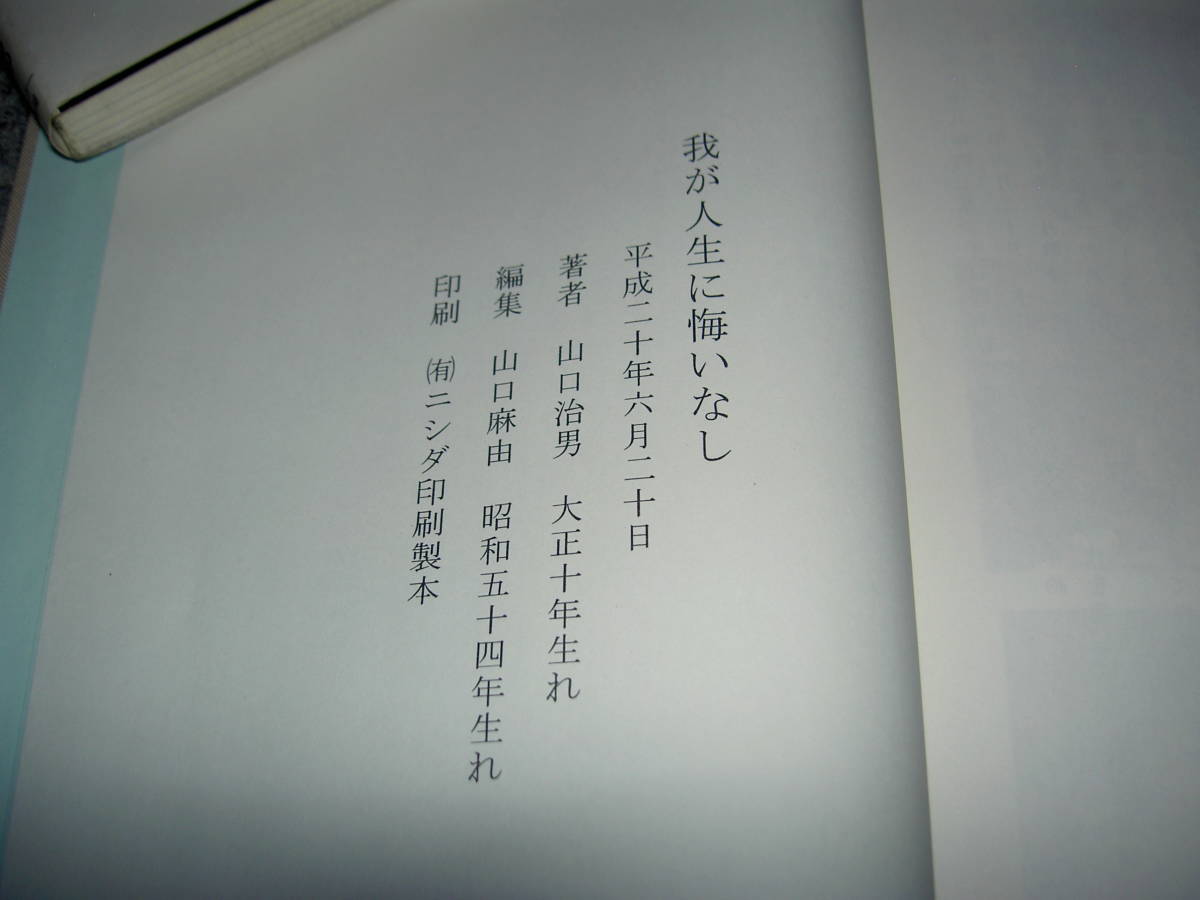 我が人生に悔いなし
平成二十年六月二十日
著者　山口治男　大正十年生れ
編集　山口麻由　昭和五十四年生れ
印刷　㈲ニシダ印刷製本